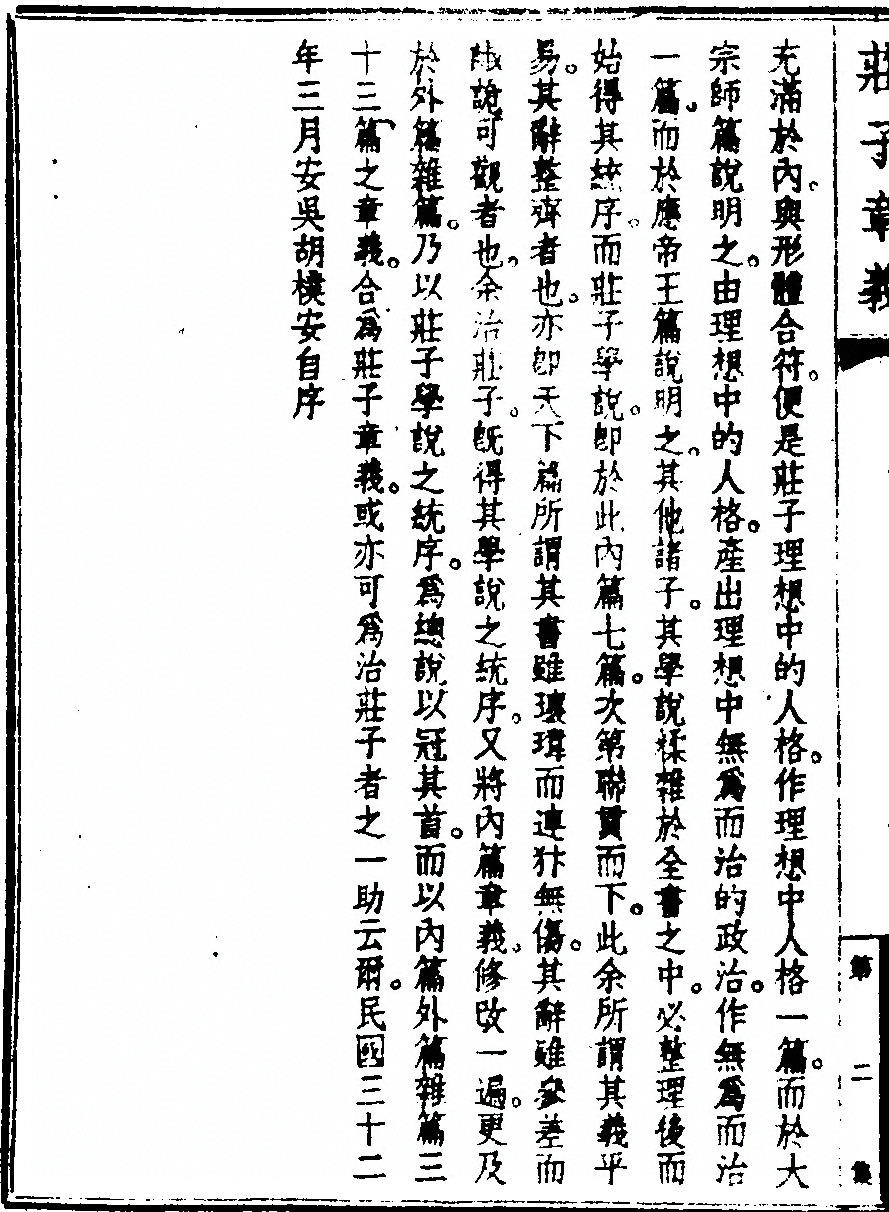 莊子章義
第二集
充滿於內。與形體合符。便是莊子理想中的人格。作理想中人格一篇。而於大
宗師篇說明之。由理想中的人格。產出理想中無為而治的政治。作無為而治
一篇。而於應帝王篇說明之。其他諸子。其學說糅雜於全書之中。必整理後而
始得其統序。而莊子學說。即於此內篇七篇。次第聯貫而下。此余所謂其義平
易。其辭整齊者也。亦即天下篇所謂其書雖瓌瑋而連犿無傷。其辭雖參差而
諔詭可觀者也。余治莊子。旣得其學說之統序。又將內篇章義。修改一遍。更及
於外篇雜篇。乃以莊子學說之統序。為總說以冠其首。而以內篇外篇雜篇三
十三篇之章義。合為莊子章義。或亦可為治莊子者之一助云爾。民國三十二
年三月安吳胡樸安自序